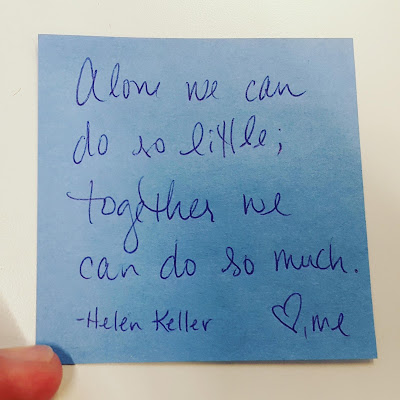 Alone we can
do so little;
together we
can do so much.
-Helen Keller ♡, me